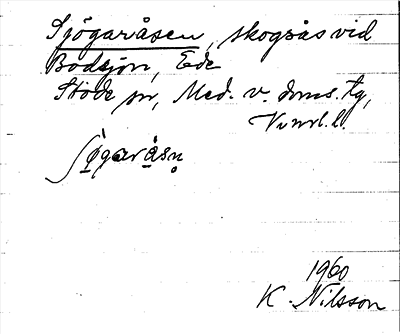 Sjögaråsen, skogsås vid
Bodsjön, Ede
Stöde sn, Med. v. doms. tg,
Vnrl. l.
ʃø̱garå̱sn̥
1960
K. Nilsson